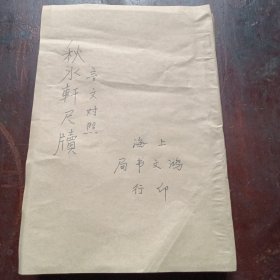 秋水軒尺牘
言文对照
上海
鸿文书局
印行